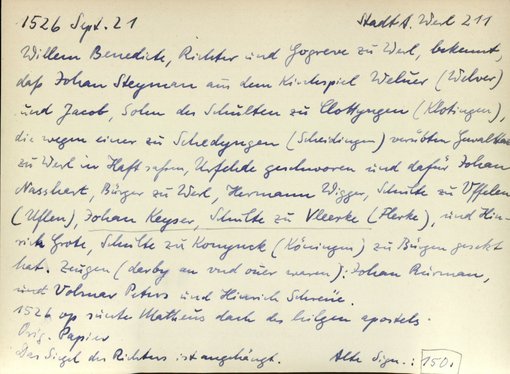 1526 Sept. 21 StadtA. Werl 211
Willem Benedicte, Richter und Gogreve zu Werl, bekennt,
daß Johan Steyman aus dem Kirchspiel Welner (Welver)
und Jacob, Sohn des Schulten zu Clottyngen (Klotingen),
die wegen einer zu Schedyngen (Scheidingen) verübten Gewalttat
zu Werl in Haft saßen, Urfehde geschworen und dafür Johan
Nasshart, Bürger zu Werl, Hermann Wigger, Schulte zu Uffelen
(Uflen), Johan Keyser, Schulte zu Vleerke (Flerke), und Hin-
rich Grote, Schulte zu Konynck (Köningen) zu Bürgen gesetzt
hat. Zeugen (derby an vnd ouer waren): Johan Rurman,
und Volmar Peters und Hinrich
1526 op sunte Matheus dach des hilgen apostels.
Orig. Papier
Das Siegel des Richters ist angehängt. Alte Sign.: 150.